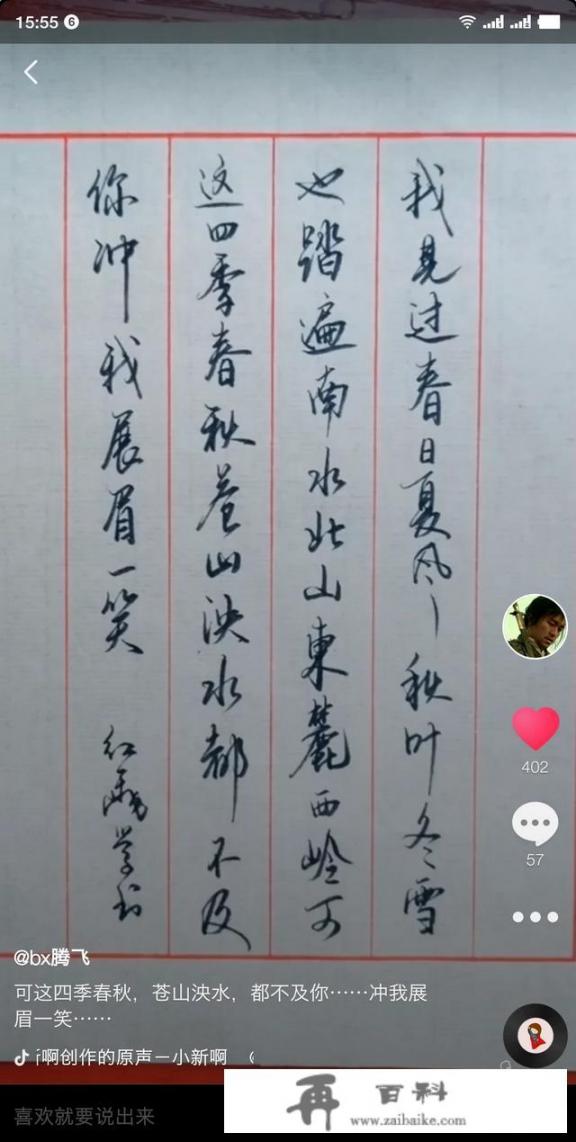 15:55 6
我见过春日夏风 秋叶冬雪
也踏遍南水北山東麓西岭可
这四季春秋苍山泱水都不及
你冲我展眉一笑
402
57
@bx腾飞
可这四季春秋，苍山泱水，都不及你……冲我展
眉一笑……
啊创作的原声－小新啊
喜欢就要说出来
再 百科
www.zaibaike.com